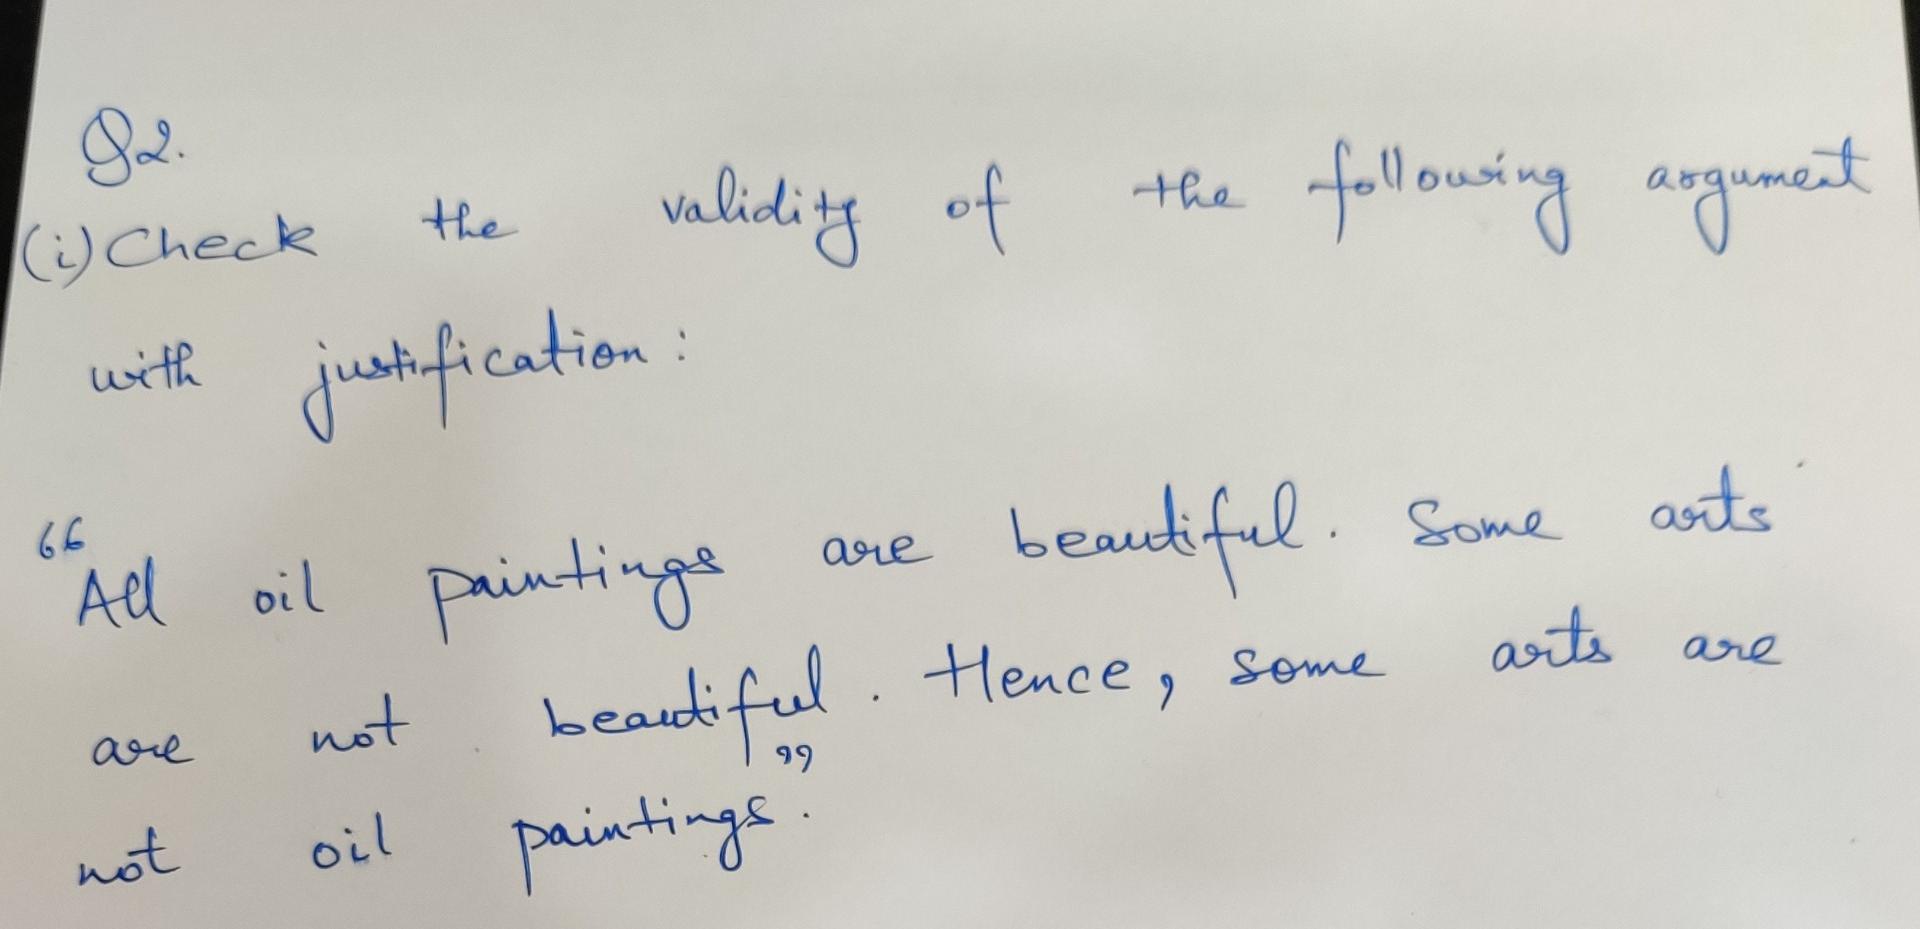 Q2.
(i) Check the validity of the following argument
with justification:
“All oil paintings are beautiful. Some arts
are not beautiful. Hence, some arts are
not oil paintings.”